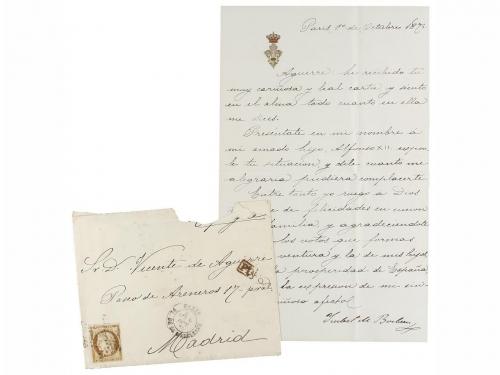 Paris 1º de Octubre 187
Aguirre he recibido tu
muy cariñosa y leal carta y siento
en el alma todo cuanto en ella
me dices.
Presentate en mi nombre á
mi amado hijo Alfonso XII
tu situacion y dile cuanto me
alegraria pudiera complacerte
Entre tanto yo ruego a Dios
de felicidades en union
familia, y agradeciendote
los votos que formas
ventura y la de mis hijos
prosperidad de España
la espresion de mi
afecto
Isabel de Borbon
Sr. D. Vicente de Aguirre
Paseo de Areneros 17 pral.
Madrid
PD